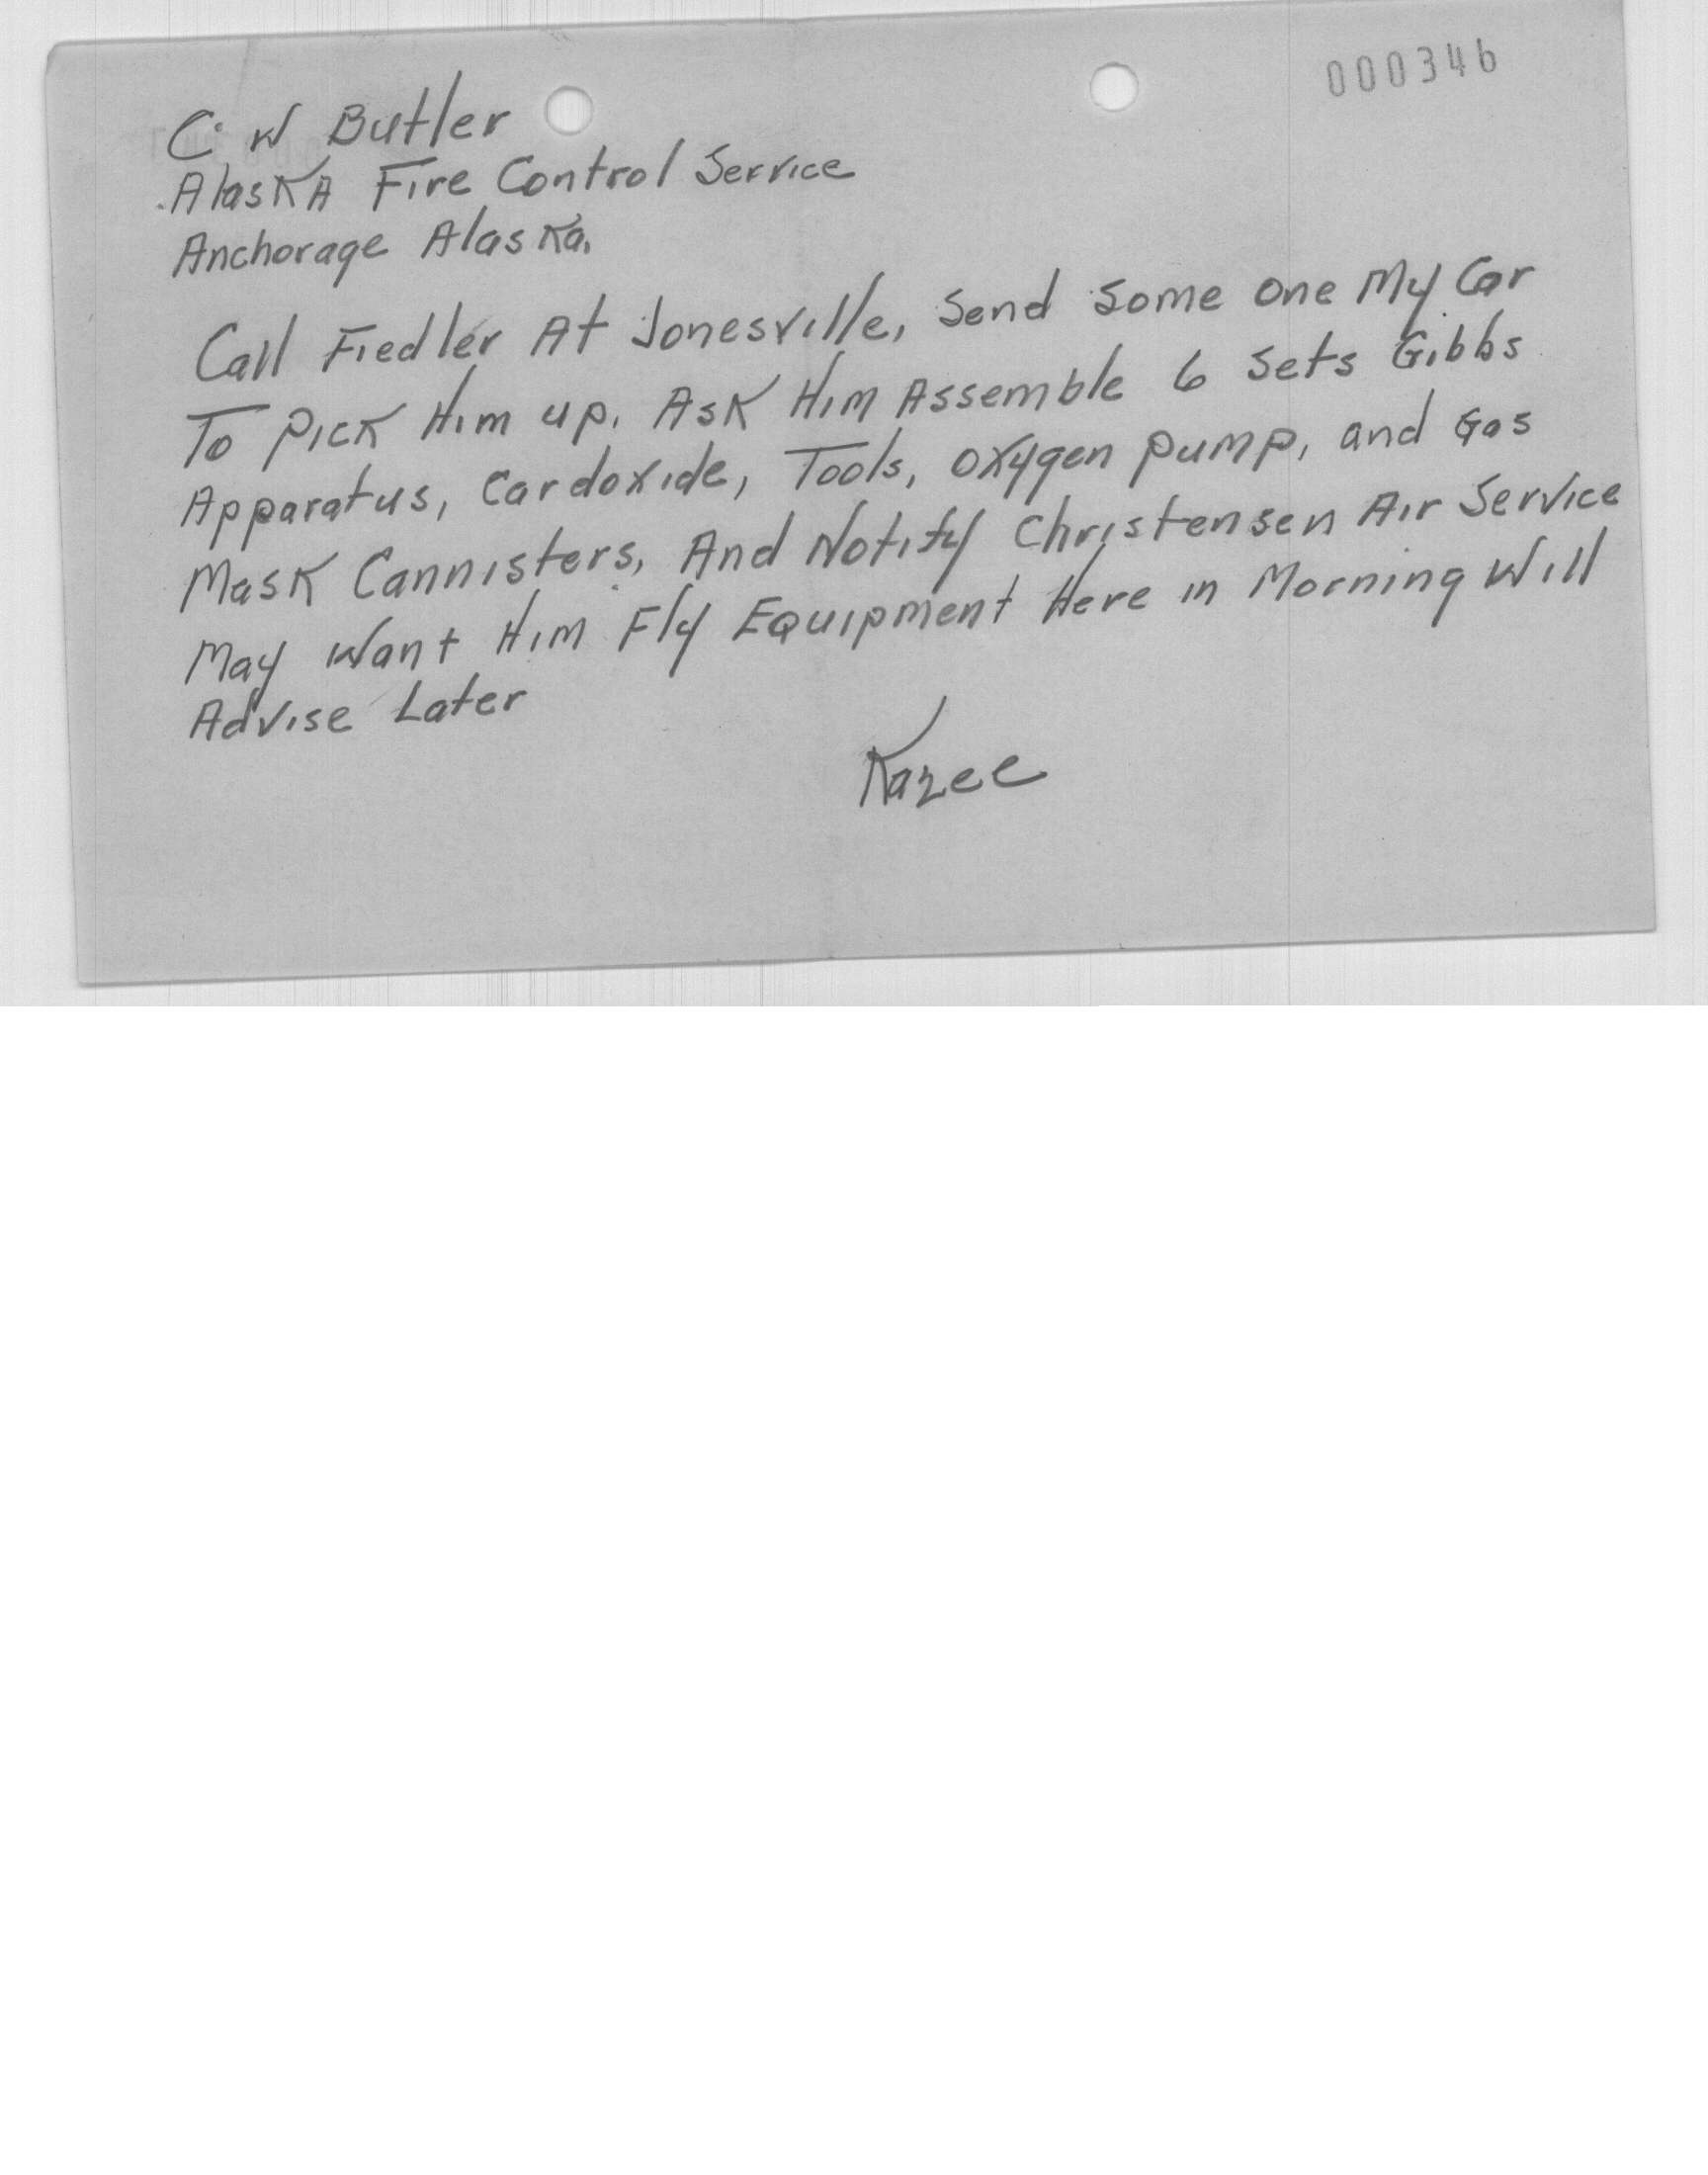 000346
C. W Butler
AlasKA Fire Control Service
Anchorage Alaska.
Call Fiedler At Jonesville, Send Some One My Car
To Pick Him up. Ask Him Assemble 6 Sets Gibbs
Apparatus, Cardoxide, Tools, Oxygen Pump, and Gas
Mask Cannisters, And Notify Christensen Air Service
May Want Him Fly Equipment Here in Morning Will
Advise Later
Kazee